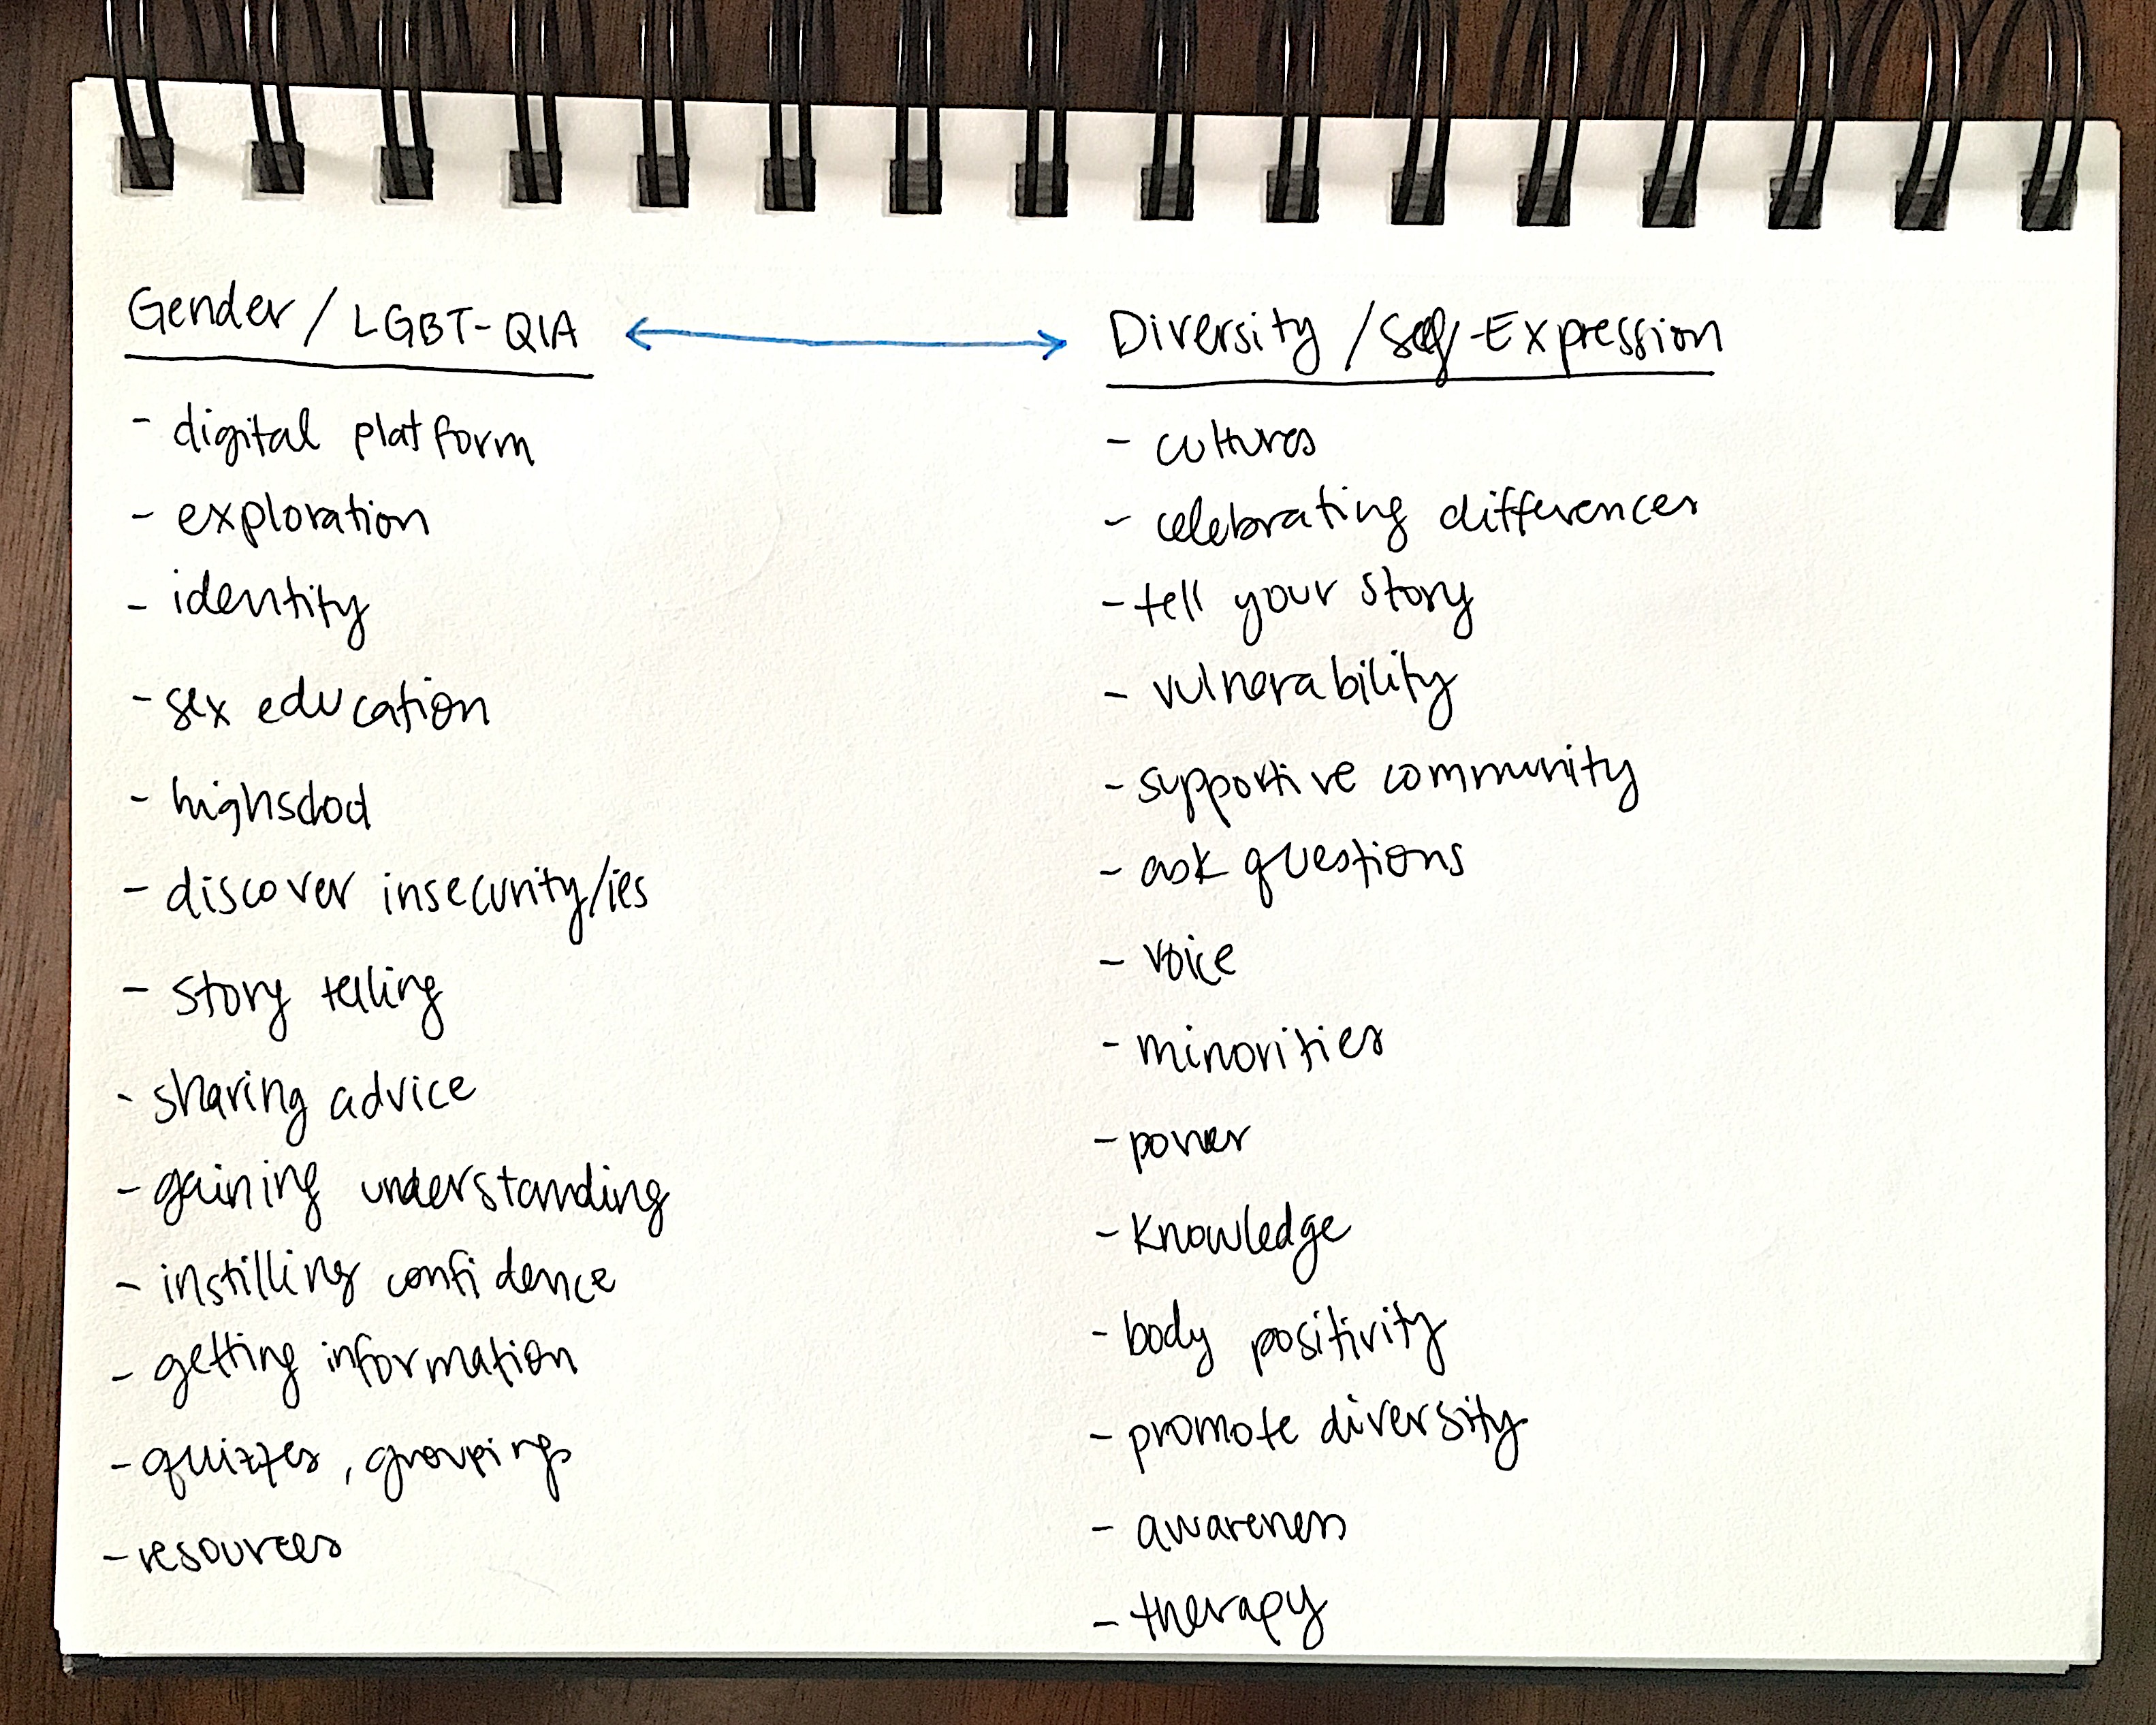 Gender / LGBT-QIA
- digital platform
- exploration
- identity
- sex education
- highschool
- discover insecurity/ies
- story telling
- sharing advice
- gaining understanding
- instilling confidence
- getting information
- quizzes, groupings
- resources
Diversity / Self-Expression
- cultures
- celebrating differences
- tell your story
- vulnerability
- supportive community
- ask questions
- voice
- minorities
- power
- knowledge
- body positivity
- promote diversity
- awareness
- therapy